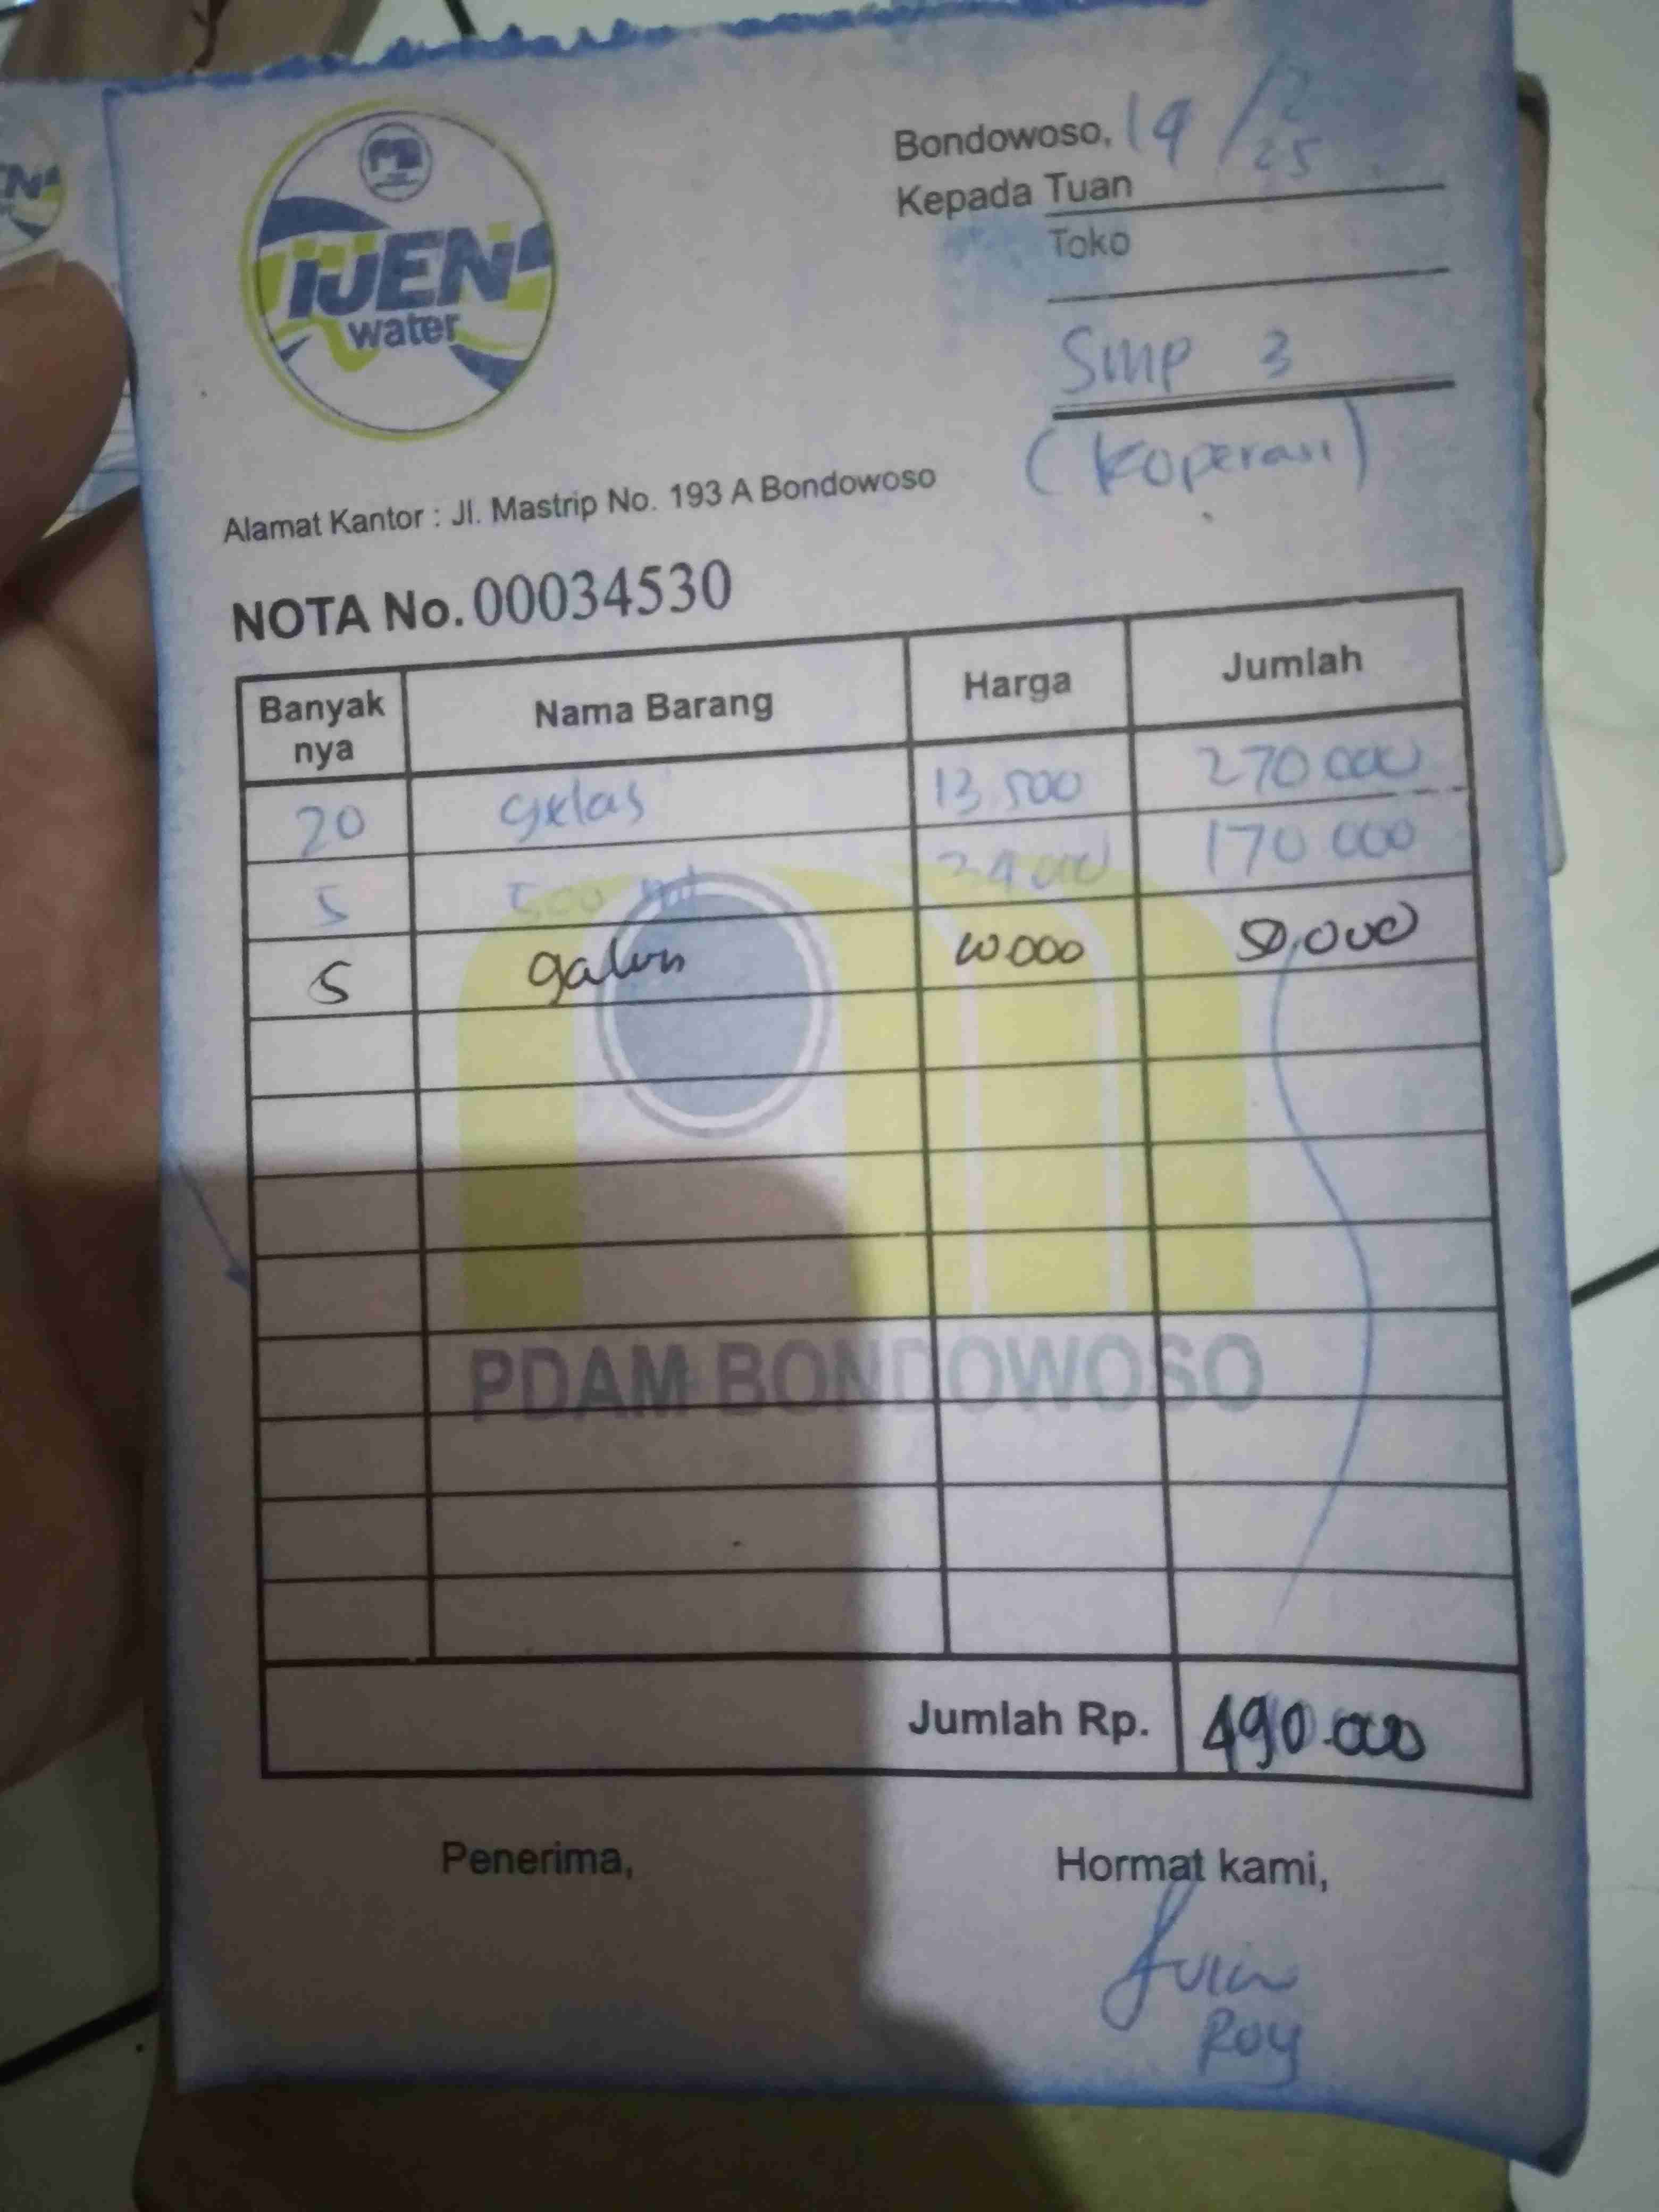 IJEN
water
Bondowoso, 19/2 25
Kepada Tuan
Toko
SMP 3
(Koperasi)
Alamat Kantor : Jl. Mastrip No. 193 A Bondowoso
NOTA No. 00034530
Banyak nya Nama Barang Harga Jumlah
20 gelas 13.500 270.000
5 500 ml 34.000 170 000
5 galon 10.000 50.000
PDAM BONDOWOSO
Jumlah Rp. 490.000
Penerima, Hormat kami,
Roy